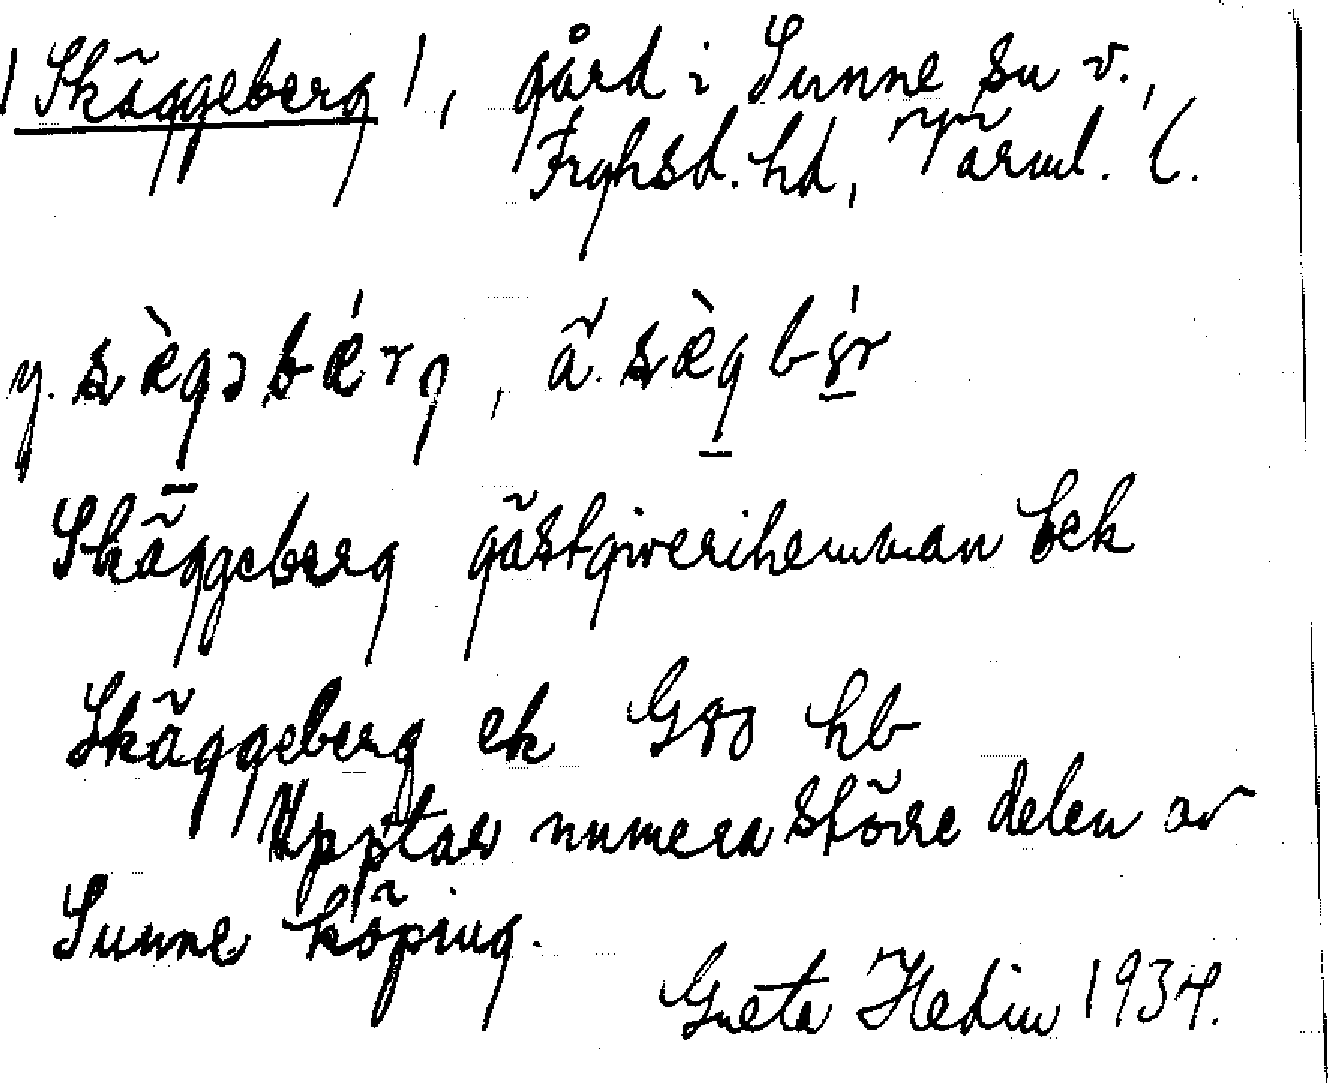 /Skäggeberg/, gård i Sunne sn v.,
Fryksd. hd, Värml. l.
y. sὲgəbǽrg, ä. sæ̀gbǽr
Skäggeberg gästgiverihemman Eek
Skäggeberg ek G80 hb
Upptar numera större delen av
Sunne köping.
Greta Hedin 1934.